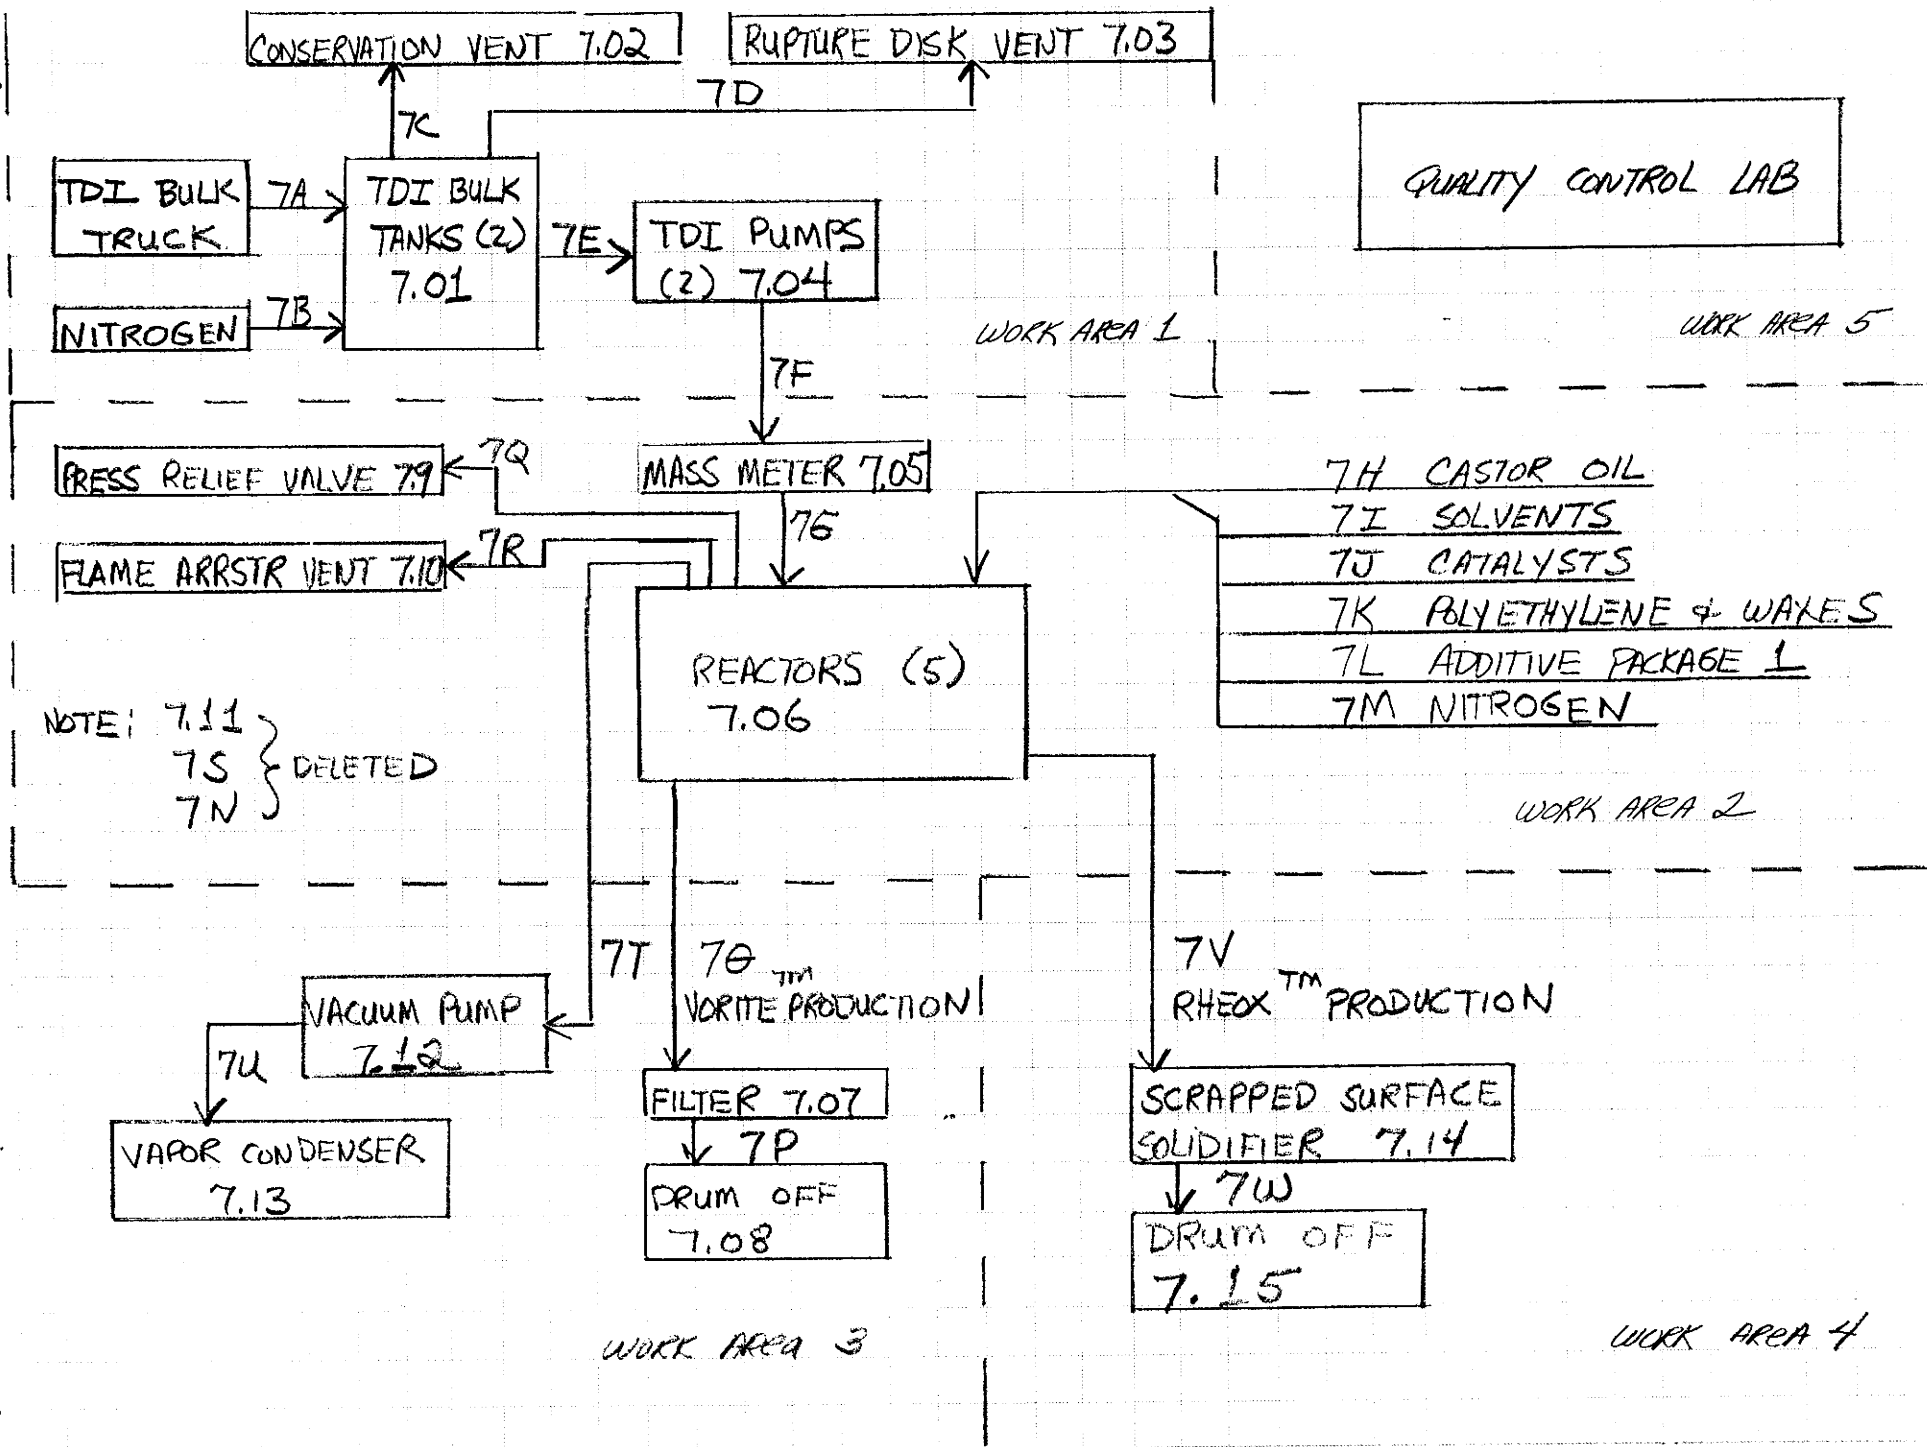 CONSERVATION VENT 7.02
RUPTURE DISK VENT 7.03
7D
7C
TDI BULK
TRUCK
7A
TDI BULK
TANKS (2)
7.01
7E
TDI PUMPS
(2) 7.04
QUALITY CONTROL LAB
NITROGEN
7B
WORK AREA 1
WORK AREA 5
7F
PRESS RELIEF VALVE 7.9
7Q
MASS METER 7.05
7G
FLAME ARRSTR VENT 7.10
7R
7H CASTOR OIL
7I SOLVENTS
7J CATALYSTS
7K POLYETHYLENE & WAXES
7L ADDITIVE PACKAGE 1
7M NITROGEN
REACTORS (5)
7.06
NOTE: 7.11
7S
7N
DELETED
WORK AREA 2
7T
7O
VORITE TM PRODUCTION
7V
RHEOX TM PRODUCTION
VACUUM PUMP
7.12
7U
VAPOR CONDENSER
7.13
FILTER 7.07
7P
DRUM OFF
7.08
SCRAPPED SURFACE
SOLIDIFIER 7.14
7W
DRUM OFF
7.15
WORK AREA 3
WORK AREA 4